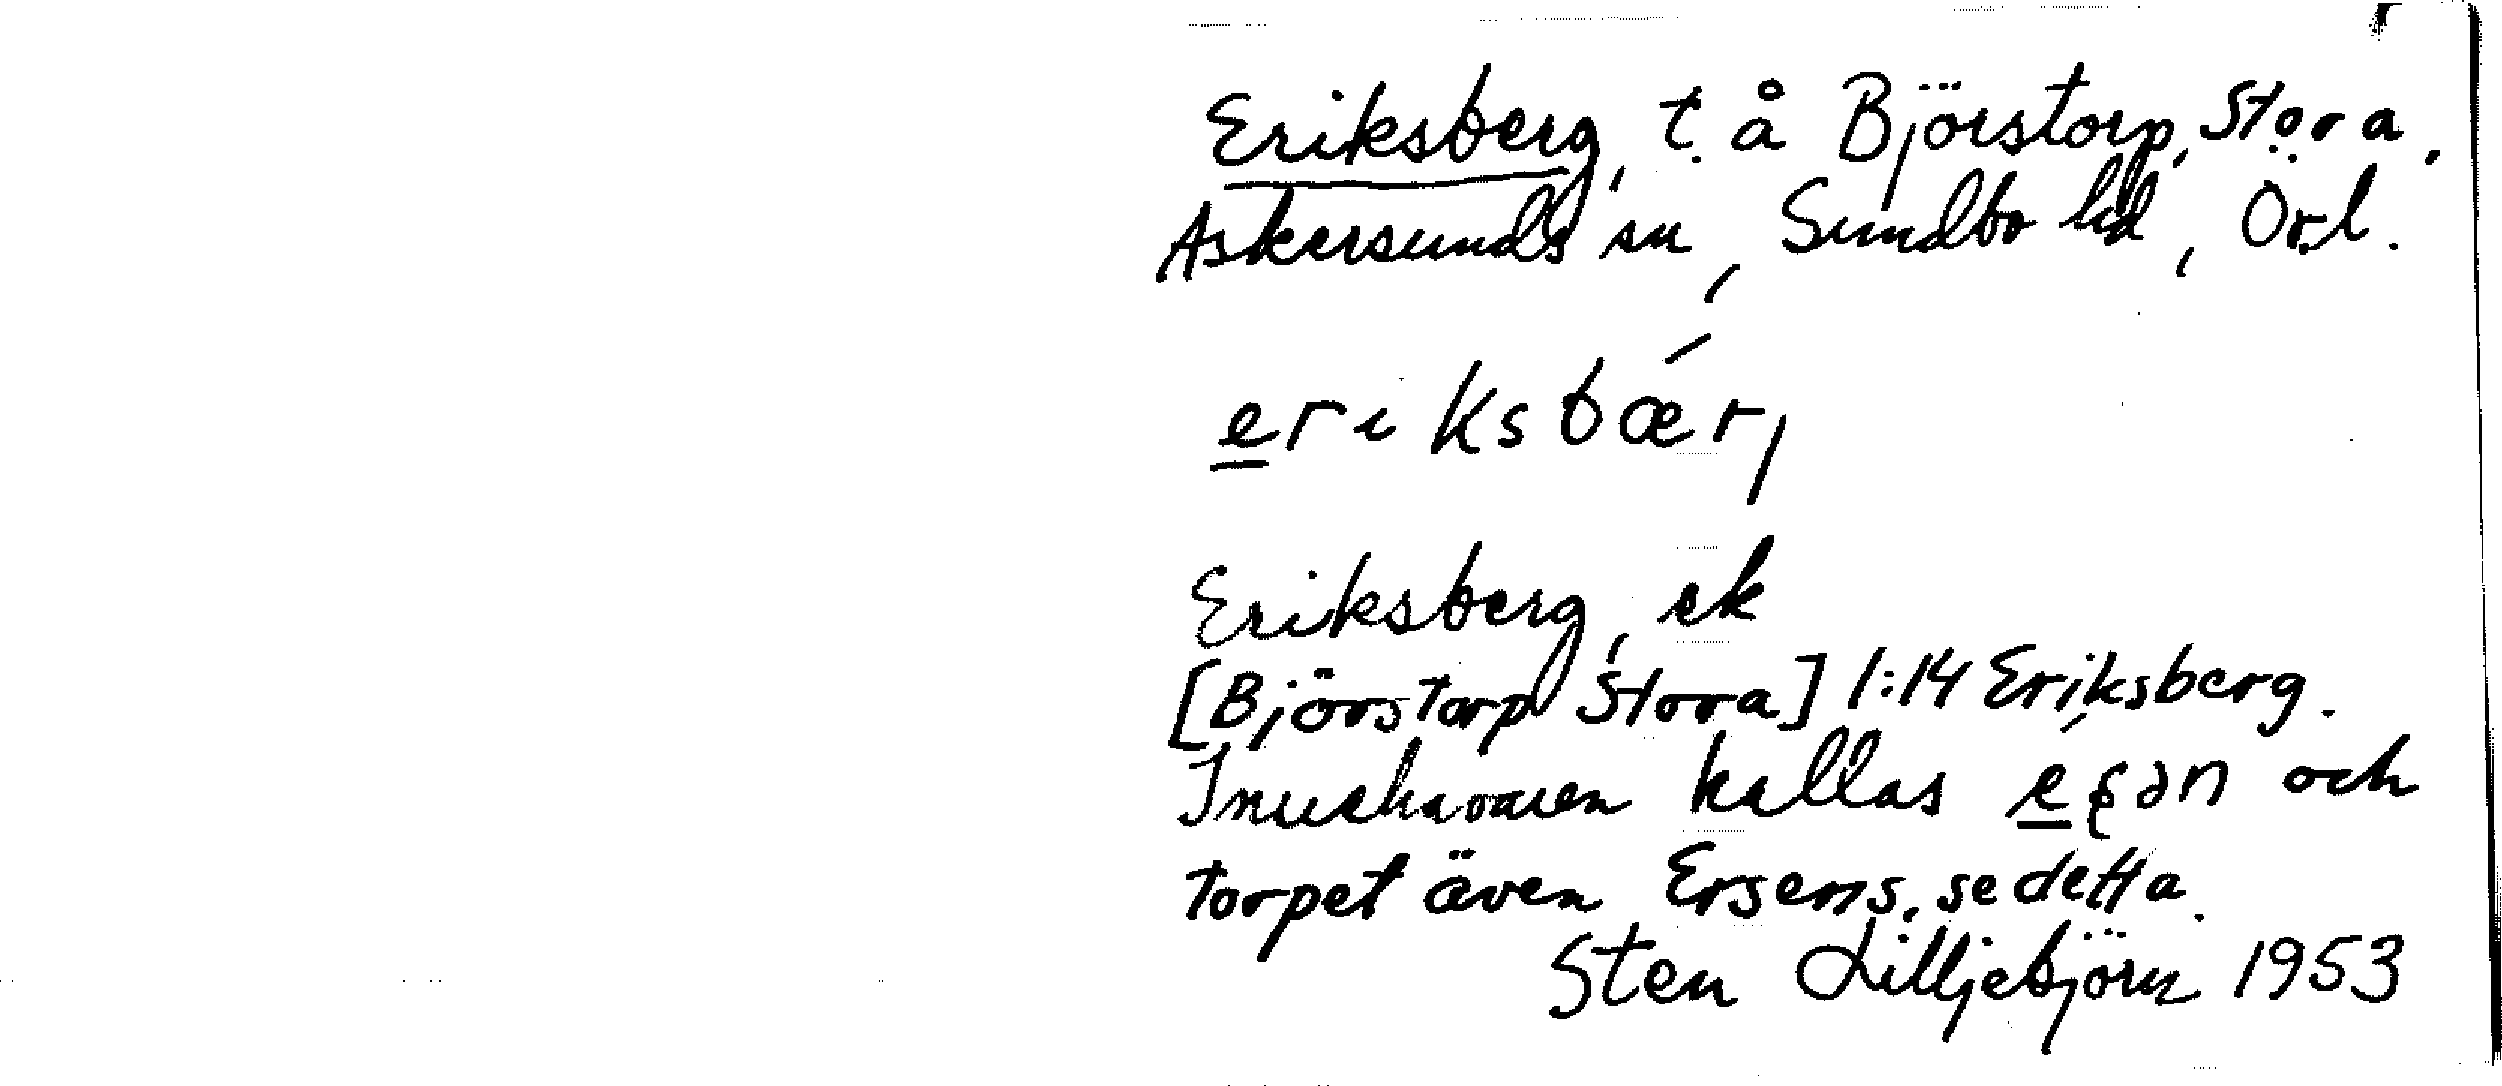 Eriksberg, t. å Björstorp, Stora.
Askersunds sn, Sundbo hd, Örl.
eriksbær,
Eriksberg, ek
[Björstorp Stora] 1:14 Eriksberg.
Innehavaren kallas eʂən och
torpet även Ersens, se detta.
Sten Lilljebjörn 1953